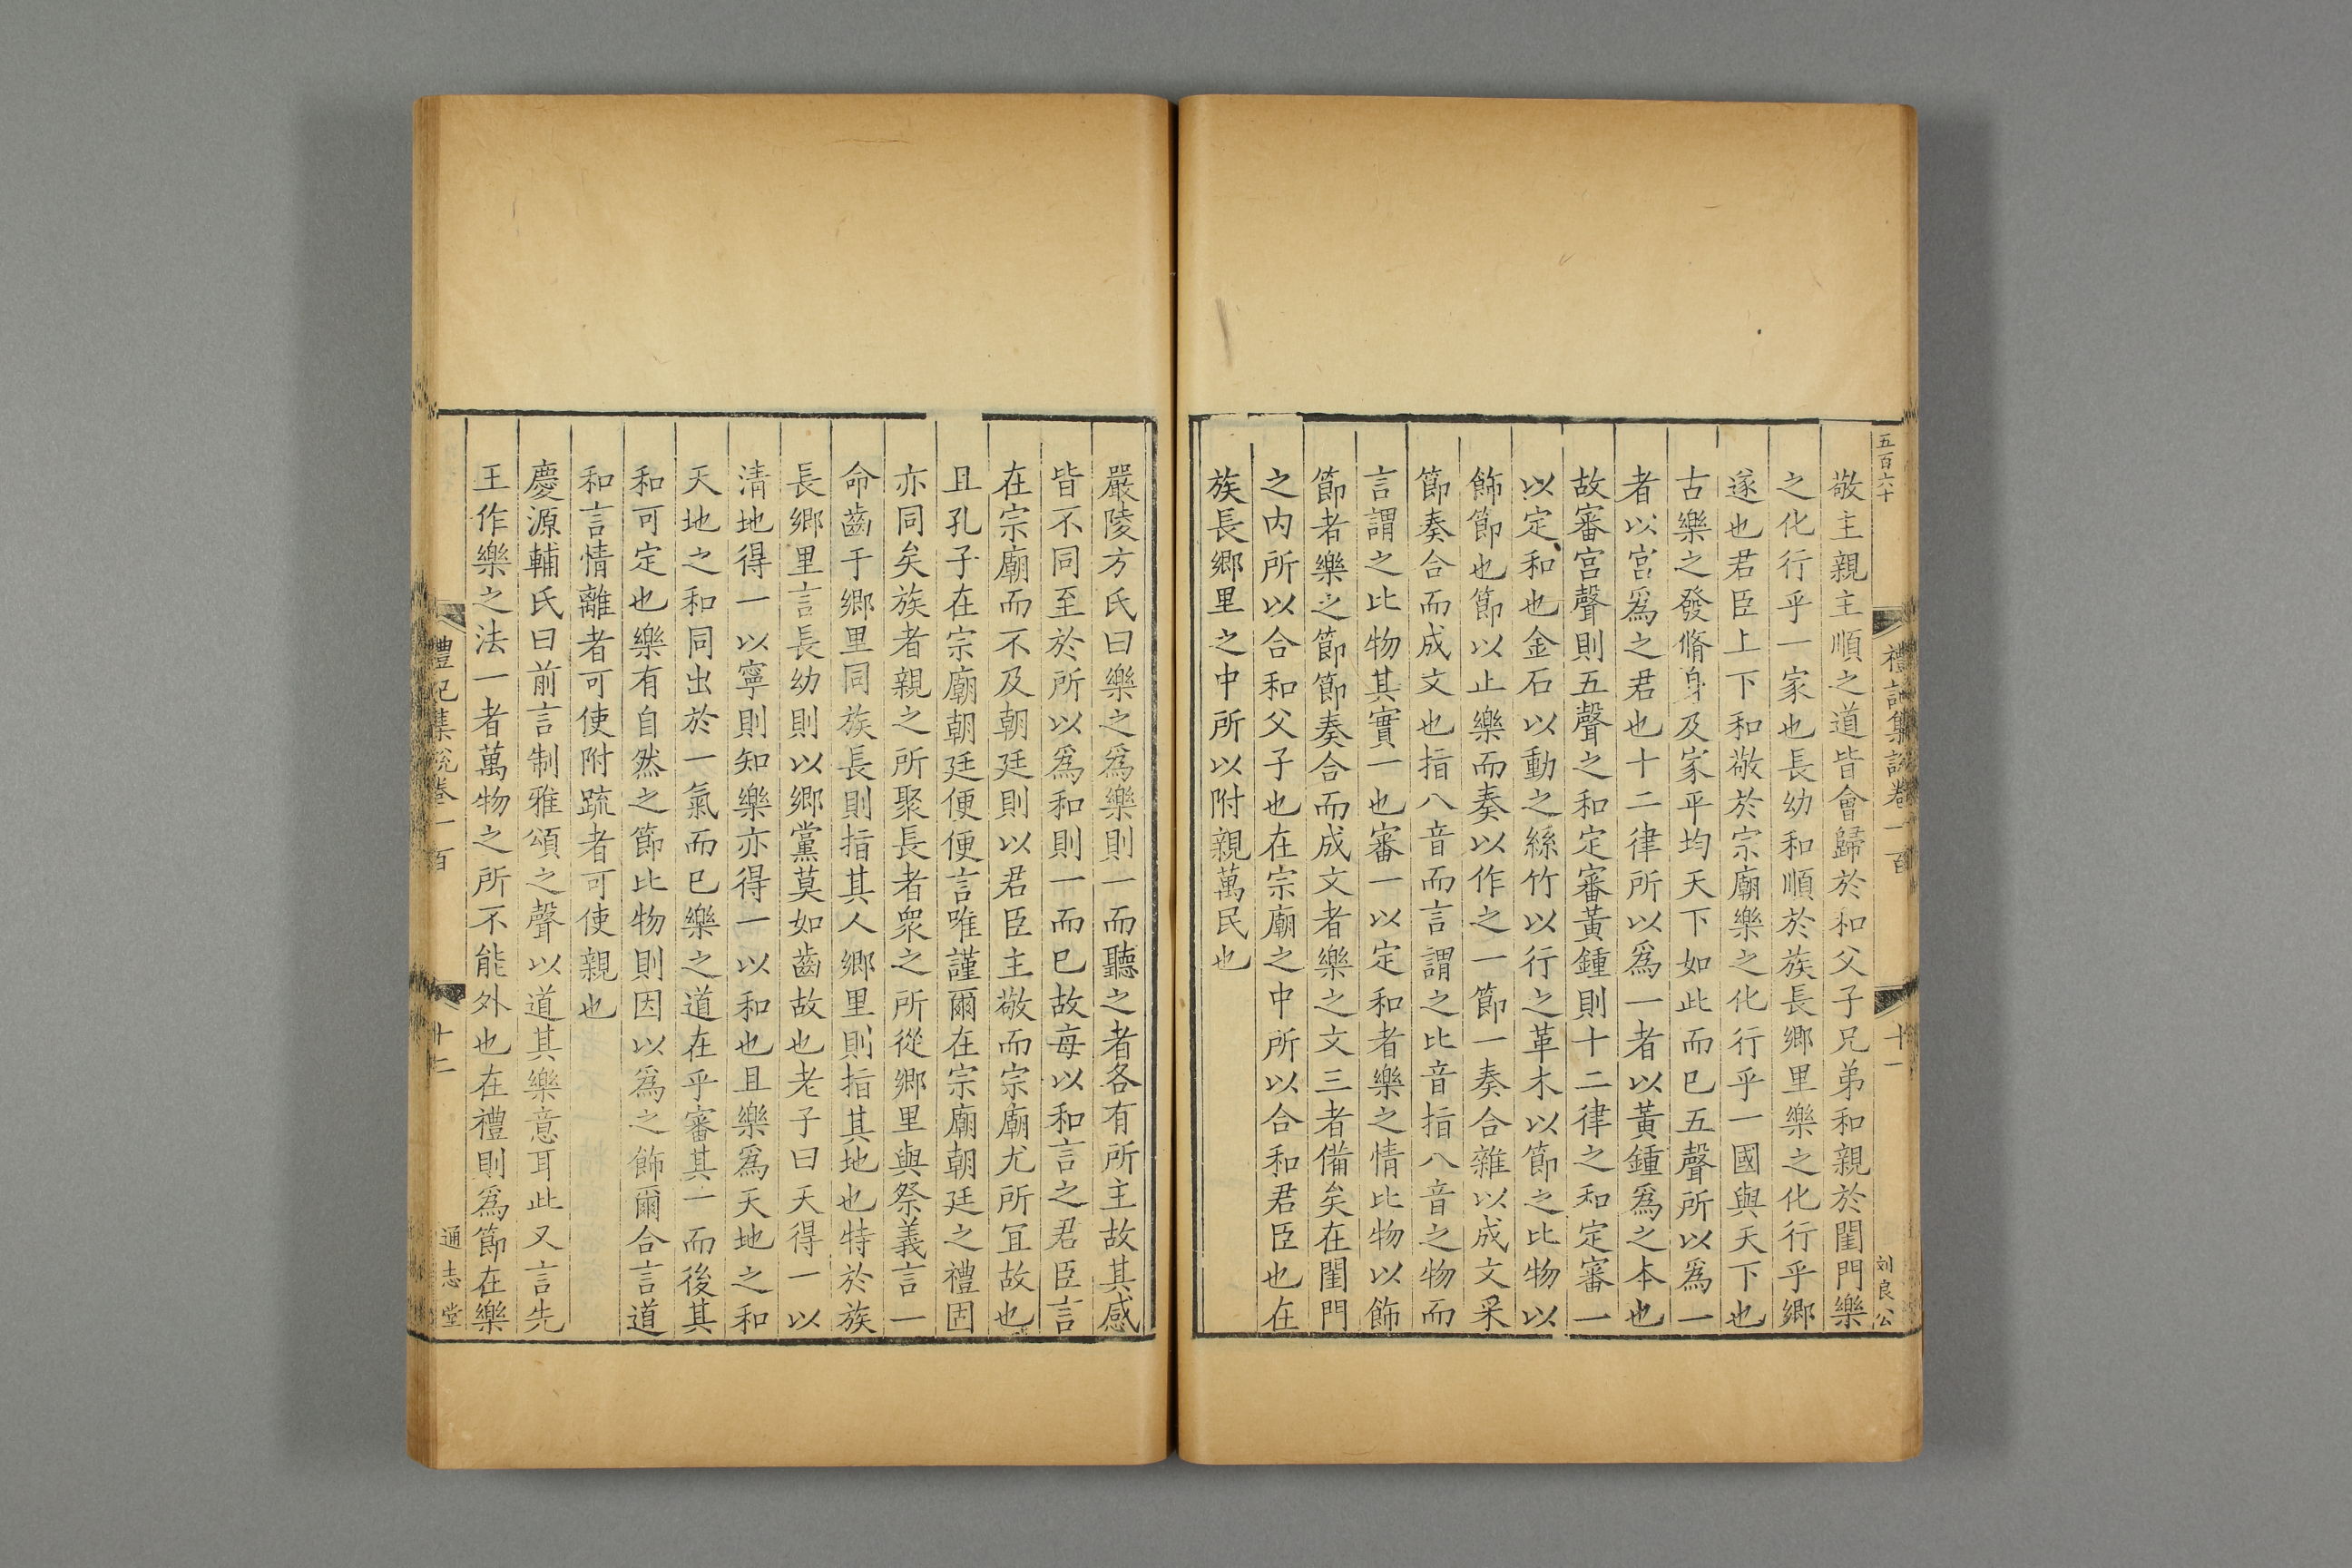 五百六十
禮記集說卷一百
十一
刘良公
敬主親主順之道皆會歸於和父子兄弟和親於閨門樂
之化行乎一家也長幼和順於族長鄉里樂之化行乎鄉
遂也君臣上下和敬於宗廟樂之化行乎一國與天下也
古樂之發脩身及家平均天下如此而巳五聲所以爲一
者以宮爲之君也十二律所以爲一者以黃鍾爲之本也
故審宮聲則五聲之和定審黃鍾則十二律之和定審一
以定和也金石以動之絲竹以行之革木以節之比物以
飾節也節以止樂而奏以作之一節一奏合雜以成文采
節奏合而成文也指八音而言謂之比音指八音之物而
言謂之比物其實一也審一以定和者樂之情比物以飾
節者樂之節節奏合而成文者樂之文三者備矣在閨門
之内所以合和父子也在宗廟之中所以合和君臣也在
族長鄉里之中所以附親萬民也
嚴陵方氏曰樂之爲樂則一而聽之者各有所主故其感
皆不同至於所以爲和則一而巳故毎以和言之君臣言
在宗廟而不及朝廷則以君臣主敬而宗廟尤所宜故也
且孔子在宗廟朝廷便便言唯謹爾在宗廟朝廷之禮固
亦同矣族者親之所聚長者衆之所從鄉里與祭義言一
命齒于鄉里同族長則指其人鄉里則指其地也特於族
長鄉里言長幼則以鄉黨莫如齒故也老子曰天得一以
清地得一以寧則知樂亦得一以和也且樂爲天地之和
天地之和同出於一氣而巳樂之道在乎審其一而後其
和可定也樂有自然之節比物則因以爲之飾爾合言道
和言情離者可使附疏者可使親也
慶源輔氏曰前言制雅頌之聲以道其樂意耳此又言先
王作樂之法一者萬物之所不能外也在禮則爲節在樂
禮記集說卷一百
十二
通志堂